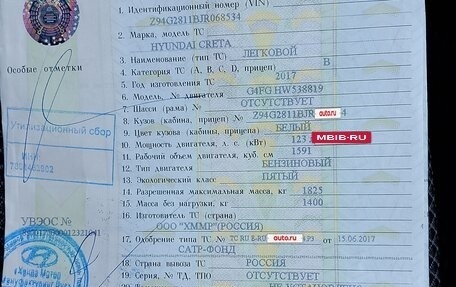 1. Идентификационный номер (VIN)
Z94G2811BJR068534
2. Марка, модель ТС
HYUNDAI CRETA
3. Наименование (тип ТС) ЛЕГКОВОЙ
Особые отметки
4. Категория ТС (А, В, С, D, прицеп) В
5. Год изготовления ТС 2017
6. Модель, № двигателя G4FG HW538819
7. Шасси (рама) № ОТСУТСТВУЕТ
8. Кузов (кабина, прицеп) № Z94G2811BJR auto.ru 4
Утилизационный сбор
9. Цвет кузова (кабины, прицепа) БЕЛЫЙ
10. Мощность двигателя, л. с. (кВт) 123 MBIB-RU
11. Рабочий объем двигателя, куб. см 1591
ИНН
12. Тип двигателя БЕНЗИНОВЫЙ
13. Экологический класс ПЯТЫЙ
14. Разрешенная максимальная масса, кг 1825
15. Масса без нагрузки, кг 1400
16. Изготовитель ТС (страна)
УВЭОС №
ООО "ХММР"(РОССИЯ)
17. Одобрение типа ТС № ТС RU E-RU auto.ru 93 от 15.06.2017
САТР-ФОНД
18. Страна вывоза ТС РОССИЯ
19. Серия, № ТД, ТПО ОТСУТСТВУЕТ